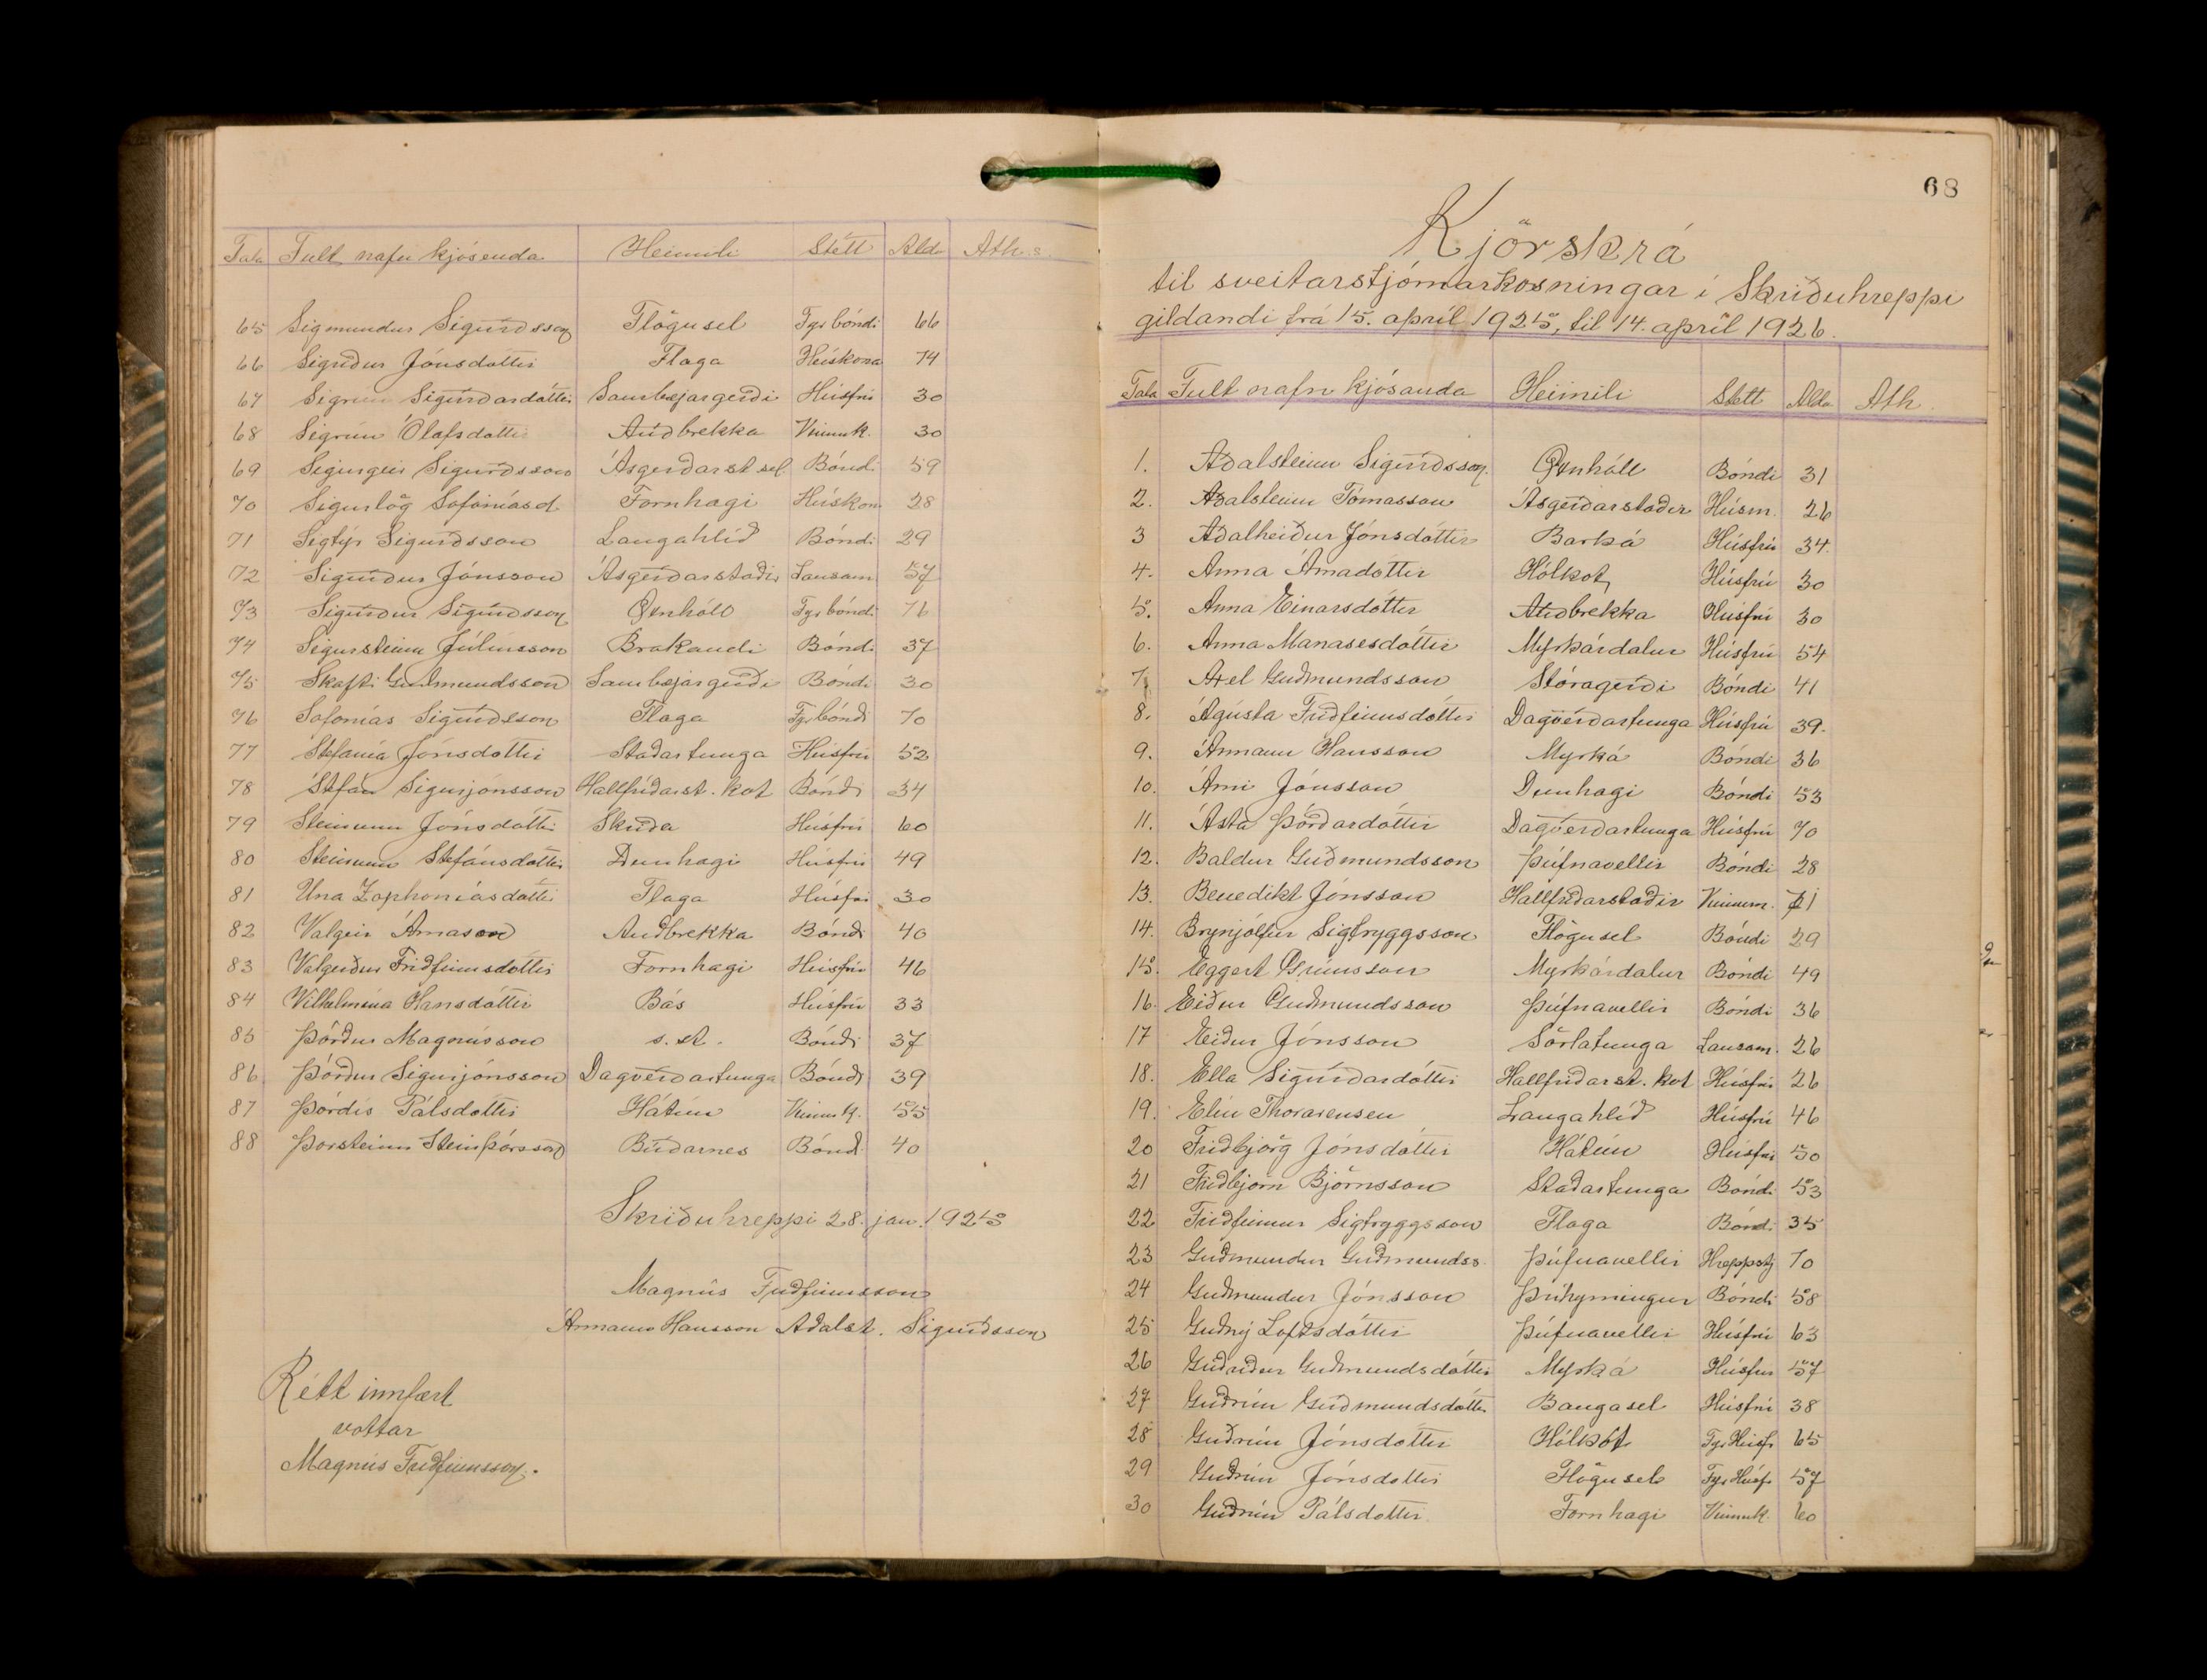 Tala Fult nafn kjósenda Heimili Stétt Aldr Ath.s.
65 Sigmundur Sigurðsson Flögusel Fyr bóndi 66
66 Sigríður Jónsdóttir Flaga Húskona 74
67 Sigrún Sigurðardóttir Lambejargerði Húsfrú 30
68 Sigrún Ólafsdóttir Auðbrekka Vinnuk. 30
69 Sigurgeir Sigurðsson Ásgerðarst.sel Bóndi 59
70 Sigurlög Sofoníasd. Fornhagi Húskon 28
71 Sigtýr Sigurðsson Langahlíð Bóndi 29
72 Sigurður Jónsson Ásgerðarstaðir Lausam 57
73 Sigurður Sigurðsson Öxnhóll Fyr bóndi 76
74 Sigursteinn Júlíusson Brakandi Bóndi 37
75 Skafti Guðmundsson Lambejargerði Bóndi 30
76 Sofonías Sigurðsson Flaga Fyr bóndi 70
77 Stefanía Jónsdóttir Staðartunga Húsfrú 52
78 Stefán Sigurjónsson Hallfríðarst.kot Bóndi 34
79 Steinunn Jónsdóttir Skriða Húsfrú 60
80 Steinunn Stefánsdóttir Dunhagi Húsfrú 49
81 Una Zophoníasdóttir Flaga Húsfrú 30
82 Valgeir Árnason Auðbrekka Bóndi 40
83 Valgerður Friðfinnsdóttir Fornhagi Húsfrú 46
84 Vilhelmína Hansdóttir Bás Húsfrú 33
85 Þórður Magnússon s.st. Bóndi 37
86 Þórður Sigurjónsson Dagverðartunga Bóndi 39
87 Þórdís Pálsdóttir Hátún Vinnuk. 55
88 Þorsteinn Steinþórsson Búðarnes Bóndi 40
Skriðuhreppi 28. jan. 1925
Magnús Friðfinnsson
Ármann Hansson Aðalst. Sigurðsson
Rétt innfært
vottar
Magnús Friðfinnsson.
68
Kjörskrá
til sveitarstjórnarkosningar í Skriðuhreppi
gildandi frá 15. apríl 1925, til 14. apríl 1926.
Tala Fult nafn kjósanda Heimili Stétt Aldr Ath.
1. Aðalsteinn Sigurðsson. Öxnhóll Bóndi 31
2. Aðalsteinn Tómasson Ásgerðarstaðir Húsm. 26
3 Aðalheiður Jónsdóttir Barká Húsfrú 34.
4. Anna Árnadóttir Hólkot, Húsfrú 30
5. Anna Einarsdóttir Auðbrekka Húsfrú 30
6. Anna Manasesdóttir Myrkárdalur Húsfrú 54
7. Axel Guðmundsson Stóragerði Bóndi 41
8. Ágústa Friðfinnsdóttir Dagverðartunga Húsfrú 39.
9. Ármann Hansson Myrká Bóndi 36
10. Árni Jónsson Dunhagi Bóndi 53
11. Ásta Þórðardóttir Dagverðartunga Húsfrú 70
12. Baldur Guðmundsson Þúfnavellir Bóndi 28
13. Benedikt Jónsson Hallfríðarstaðir Vinnum. 71
14. Brynjólfur Sigtryggsson Flögusel Bóndi 29
15. Eggert Grímsson Myrkárdalur Bóndi 49
16. Eiður Guðmundsson Þúfnavellir Bóndi 36
17 Eiður Jónsson Sörlatunga Lausam. 26
18. Ella Sigurðardóttir Hallfríðarst.kot Húsfrú 26
19. Elín Thorarensen Langahlíð Húsfrú 46
20 Friðbjörg Jónsdóttir Hátún Húsfrú 50
21 Friðbjörn Björnsson Staðartunga Bóndi 53
22 Friðfinnur Sigtryggsson Flaga Bóndi 35
23 Guðmundur Guðmundss. Þúfnavellir Hreppstj 70
24 Guðmundur Jónsson Þríhyrningur Bóndi 58
25 Guðný Loftsdóttir Þúfnavellir Húsfrú 63
26 Guðríður Guðmundsdóttir Myrká Húsfrú 57
27 Guðrún Guðmundsdóttir Baugasel Húsfrú 38
28 Guðrún Jónsdóttir Hólkot Fyr Húsfr 65
29 Guðrún Jónsdóttir Flögusel Fyr Húsfr 57
30 Guðrún Pálsdóttir. Fornhagi Vinnuk. 60